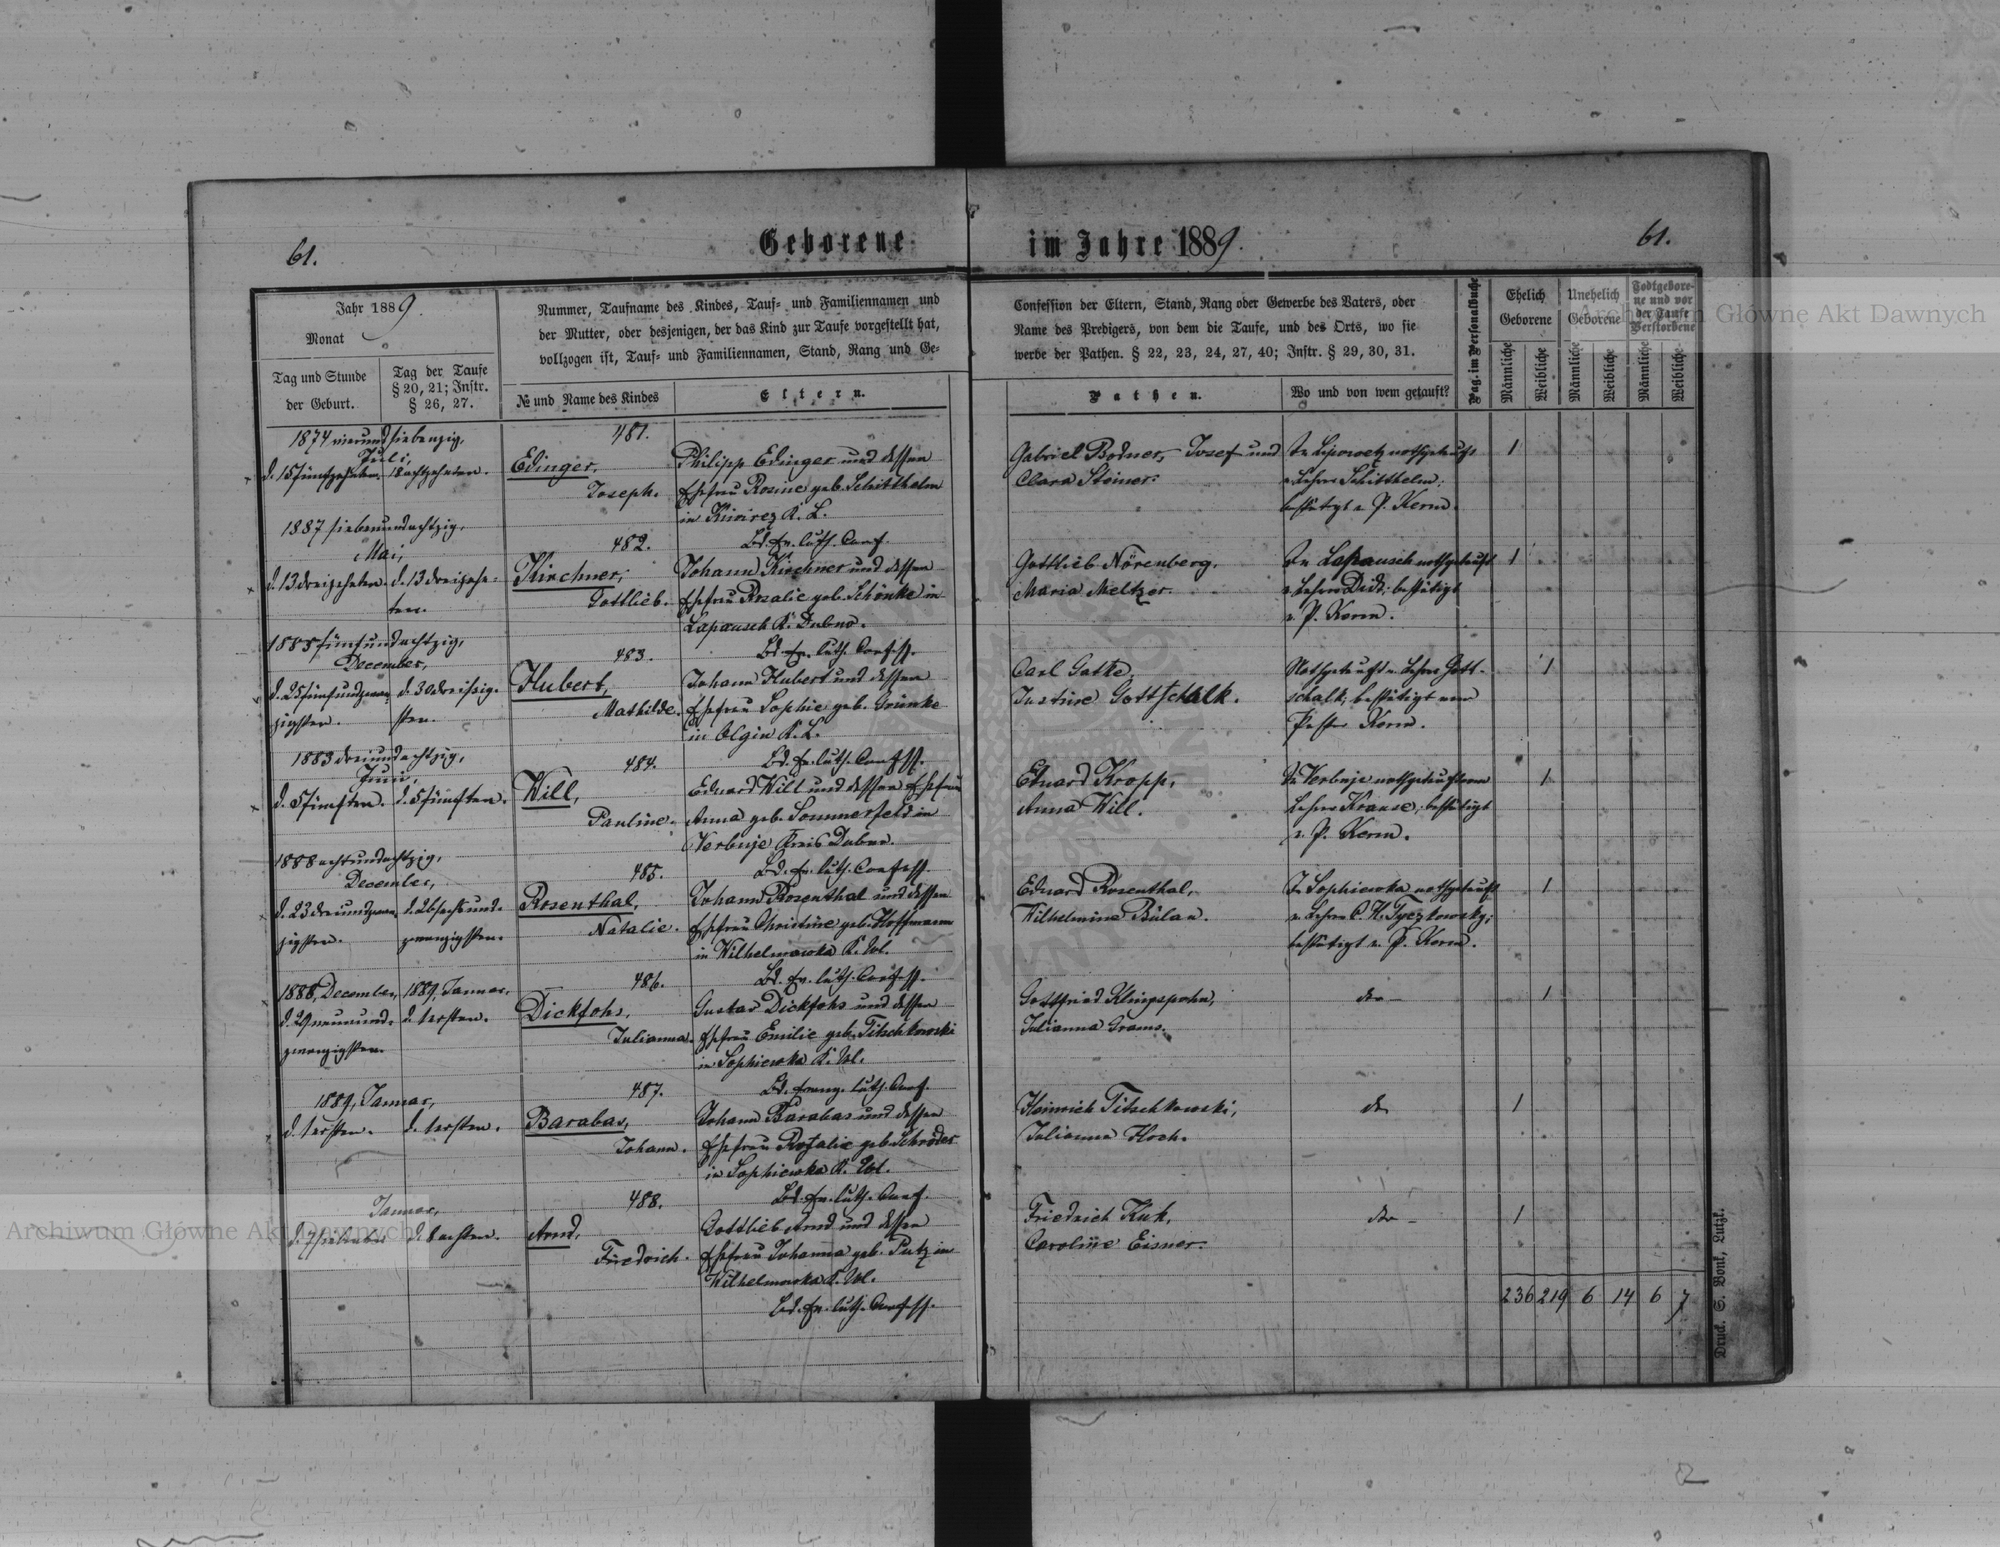 61.
Geborene
im Jahre 1889.
61.
Jahr 1889.
Monat
Tag und Stunde
der Geburt.
Tag der Taufe
§ 20, 21; Instr.
§ 26, 27.
Nummer, Taufname des Kindes, Tauf- und Familiennamen und
der Mutter, oder desjenigen, der das Kind zur Taufe vorgestellt hat,
vollzogen ist, Tauf- und Familiennamen, Stand, Rang und Ge-
№ und Name des Kindes
Eltern.
Confession der Eltern, Stand, Rang oder Gewerbe des Vaters, oder
Name des Predigers, von dem die Taufe, und des Orts, wo sie
werbe der Pathen. § 22, 23, 24, 27, 40; Instr. § 29, 30, 31.
Pathen.
Wo und von wem getauft?
Pag. im Personalbuche
Ehelich
Geborene
Unehelich
Geborene
Todtgebore-
ne und vor
der Taufe
Verstorbene
Männliche
Weibliche
Männliche
Weibliche
Männliche
Weibliche
1874 vierundsiebenzig,
Juli,
d. 15 fünfzehnten. 18 achtzehnten.
481.
Edinger,
Joseph.
Philipp Edinger und dessen
Ehefrau Rosine geb. Schitthelm
in K. L.
Bd. Ev. luth. Conf.
Gabriel Bodner, Josef und
Clara Steiner.
In nothgetauft
v. Lehrer Schitthelm;
bestätigt v. P. Kerm.
1
1887 siebenundachtzig,
Mai,
d. 13 dreizehnten. d. 13 dreizehn-
ten.
482.
Kirchner,
Gottlieb.
Johann Kirschner und dessen
Ehefrau Rosalie geb. Schönke in
Lapausch K. Dubno.
Bd. Ev. luth. Confess.
Gottlieb Nörenberg,
Maria Meltzer.
In Lapausch nothgetauft
v. Lehrer bestätigt
v. P. Kerm.
1
1885 fünfundachtzig,
December,
d. 25 fünfundzwan-
zigsten.
d. 30 dreißig-
sten.
483.
Hubert,
Mathilde.
Johann Hubert und dessen
Ehefrau Sophie geb. Grünke
in Olgin K. L.
Bd. Ev. luth. Confess.
Carl Gatke,
Justine Gottschalk.
Nothgetauft v. Lehrer Gott-
schalk; bestätigt von
Pastor Kerm.
1
1883 dreiundachtzig,
Juni,
d. 5 fünften. d. 5 fünften.
484.
Will,
Pauline.
Eduard Will und dessen Ehefrau
Anna geb. Sommerfeld in
Verbuje Kreis Dubno.
Bd. Ev. luth. Confess.
Eduard Kropp,
Anna Will.
In Verbuje nothgetauft von
Lehrer Krause; bestätigt
v. P. Kerm.
1
1888 achtundachtzig,
December,
d. 23 dreiundzwan-
zigsten.
d. 26 sechsund-
zwanzigsten.
485.
Rosenthal,
Natalie.
Johann Rosenthal und dessen
Ehefrau Christine geb. Hoffmann
in Wilhelmowka K. Wl.
Bd. Ev. luth. Confess.
Eduard Rosenthal,
Wilhelmine Bülau.
In Sophiewka nothgetauft
v. Lehrer Tyczkowsky;
bestätigt v. P. Kerm.
1
1888, December, 1889, Januar,
d. 29 neunund-
zwanzigsten.
d. 1 ersten.
486.
Dickfohs,
Julianna.
Gustav Dickfohs und dessen
Ehefrau Emilie geb. Titschkowski
in Sophiewka K. Wl.
Bd. Evang. luth. Conf.
Gottfried Klingspohn,
Julianna Grams.
do
1
1889, Januar,
d. 1 ersten. d. 1 ersten.
487.
Barabas,
Johann.
Johann Barabas und dessen
Ehefrau Rosalie geb. Schröder
in Sophiewka K. Wl.
Bd. Ev. luth. Conf.
Heinrich Titschkowski,
Julianna Hoch.
do
1
Januar,
d. 7 siebenten. d. 8 achten.
488.
Arnd,
Friedrich.
Gottlieb Arnd und dessen
Ehefrau Johanna geb. Putz in
Wilhelmowka K. Wl.
Bd. Ev. luth. Confess.
Friedrich Kuk,
Caroline Eisner.
do
1
236 219 6 14 6 7
Druck. S. Bonk, Lutzk.
Archiwum Główne Akt Dawnych
Archiwum Główne Akt Dawnych